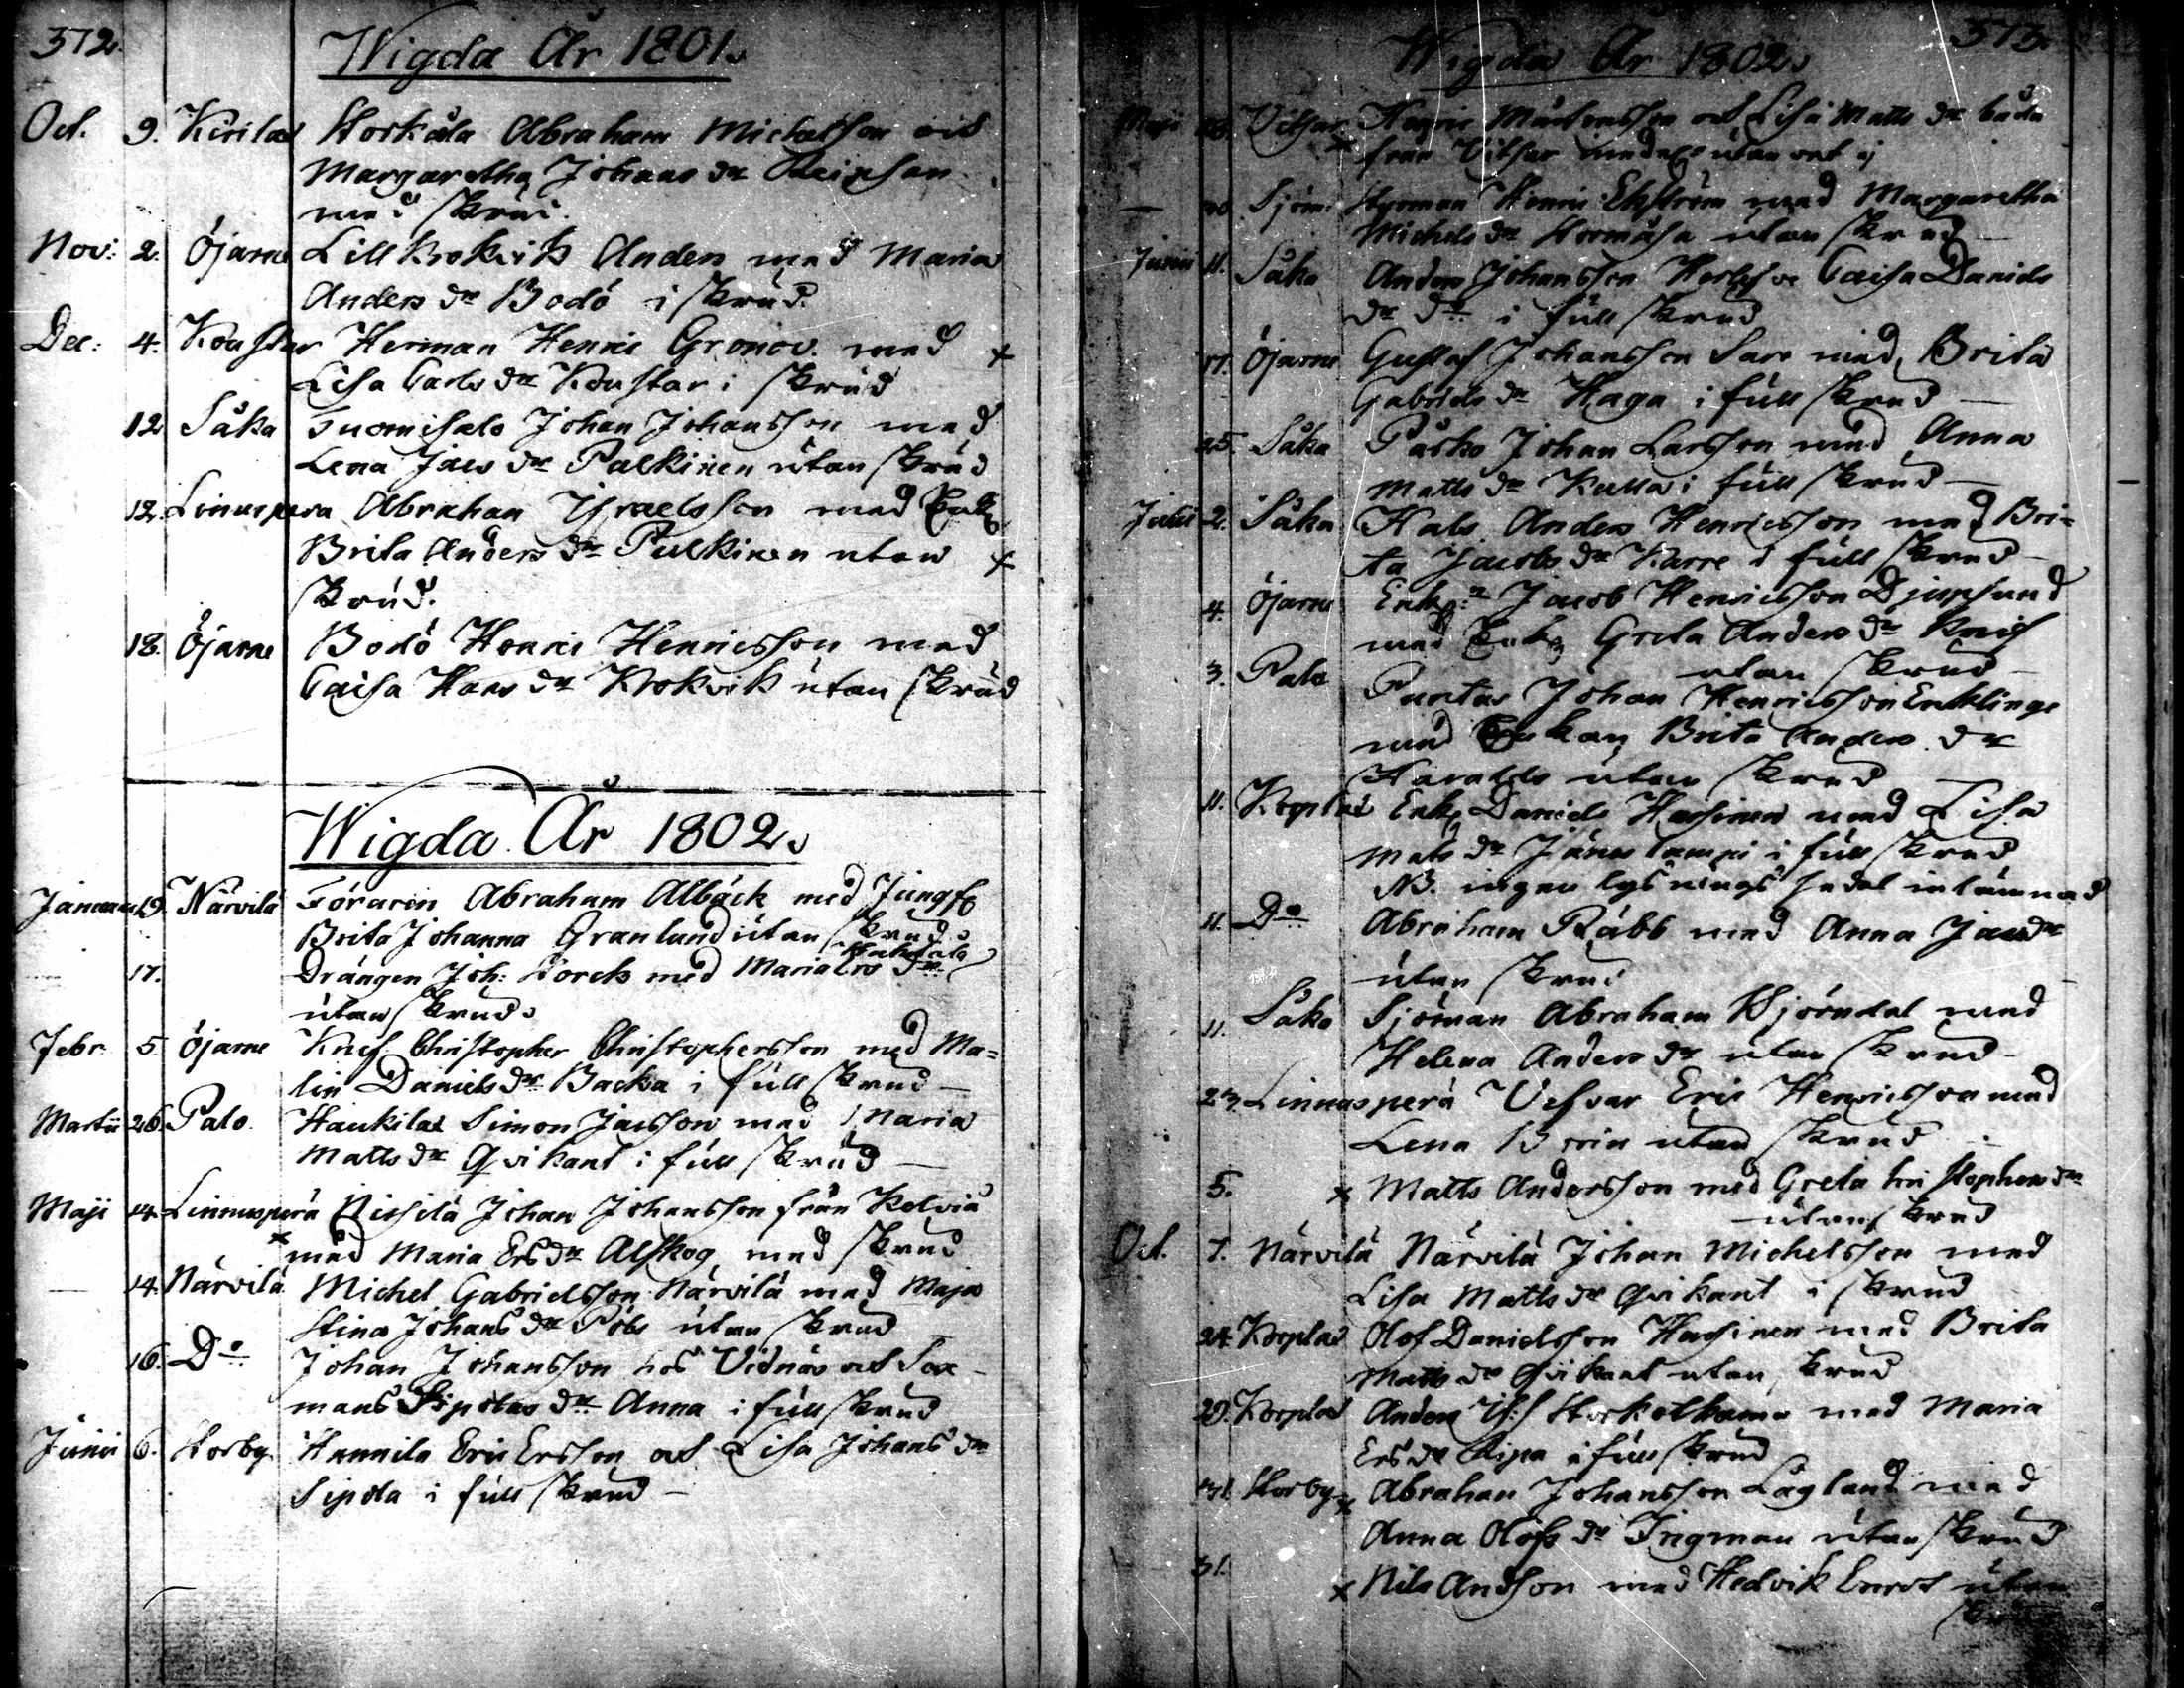 372.
Wigda År 1801.
Oct. 9. Kirilax Storkåla Abraham Michelsson och
Margaretha Johans dr Reinson
med skrud.
Nov: 2. Öjarne Lill Krokvik Anders med Maria
Anders dr Bodö i skrud.
Dec: 4. Koustar Herman Henric Gronov. med x
Lisa Carls dr Koustar i skrud
12 Såka Tuomisalo Johan Johansson med
Lena Jacs dr Palkinen utan skrud
12. Linnuspera Abraham Israelsson med Enk.
Brita Anders dr Pulkinen utan x
skrud.
18. Öjarne Bodö Henric Henricsson med
Caisa Hans dr Krokvik utan skrud
Wigda År 1802.
Januari 19. Närvilä Förarin Abraham Albäck med Jungf.
Brita Johanna Granlund utan skrud.
17. Drängen Joh: Storck med Maria Ers dr
utan skrud.
Febr. 5. Öjarne Knif Christopher Christophersson med Ma-
lin Daniels dr Backa i full skrud —
Martii 26. Palo. Haukilax Simon Jacsson med Maria
Matts dr Qvikant i full skrud —
Maji 14. Linnuspärä Nissilä Johan Johansson från Kelviå
x med Maria Ers dr Alskog med skrud
— 14. Närvilä Michel Gabrielsson Närvilä med Maja
Stina Johans dr Pöbs utan skrud
16. Do Johan Johansson hos Vidnäs och Sex-
mans Sipolas dr Anna i full skrud
Junii 6. Storby. Hannila Eric Ersson och Lisa Johans dr
Sipola i full skrud —
373.
Wigda År 1802.
Maji Vitsar x Henric Mårtensson och Lisa Matts dr båda
från Vitsar
— 30. Sjöm: Styrman Henric Ekström med Margaretha
Michels dr Stormåsa utan skrud —
Junii 11. Såka Anders Johansson Caisa Daniels
dr do i full skrud
17. Öjarne Gustaf Johansson Sare med Brita
Gabriels dr Haga i full skrud —
25. Såka Påsko Johan Larsson med Anna
Matts dr Kulla i full skrud —
Julii 2. Såka Hals Anders Henricsson med Bri-
ta Jacobs dr Karre i full skrud —
4. Öjarne Enkl: Jacob Henricsson Djupsund
med Enk. Greta Anders dr Knif
utan skrud —
3. Palo Puntus Johan Henricsson Encklinge
med Enkan Brita Anders dr
Haralds utan skrud —
11. Korplax Enk. Daniels Hassinen med Lisa
Mats dr Jänes lampi i full skrud
NB. ingen lysnings sedel inlämnad
11. Do Abraham Räbb med Anna Jacs dr
utan skrud
11. Såka Sjöman Abraham Björndal med
Helena Anders dr utan skrud —
23. Linnusperä Vesvar Eric Henricsson med
Lena Brrin utan skrud —
5. x Matts Andersson med Greta Christophers dr
utan skrud
Oct. 7. Närvilä Närvilä Johan Michelsson med
Lisa Matts dr Qvikant i skrud
24. Korplax Olof Danielsson Hassinen med Brita
Matts dr Qvikant utan skrud
29. Korplax Anders Storkotkamo med Maria
Ers dr Ripa i full skrud
31. Storby x Abraham Johansson Lågland med
Anna Olofs dr Ingman utan skrud
31. x Nils Andsson med Hedvik Enrot utan
skrud